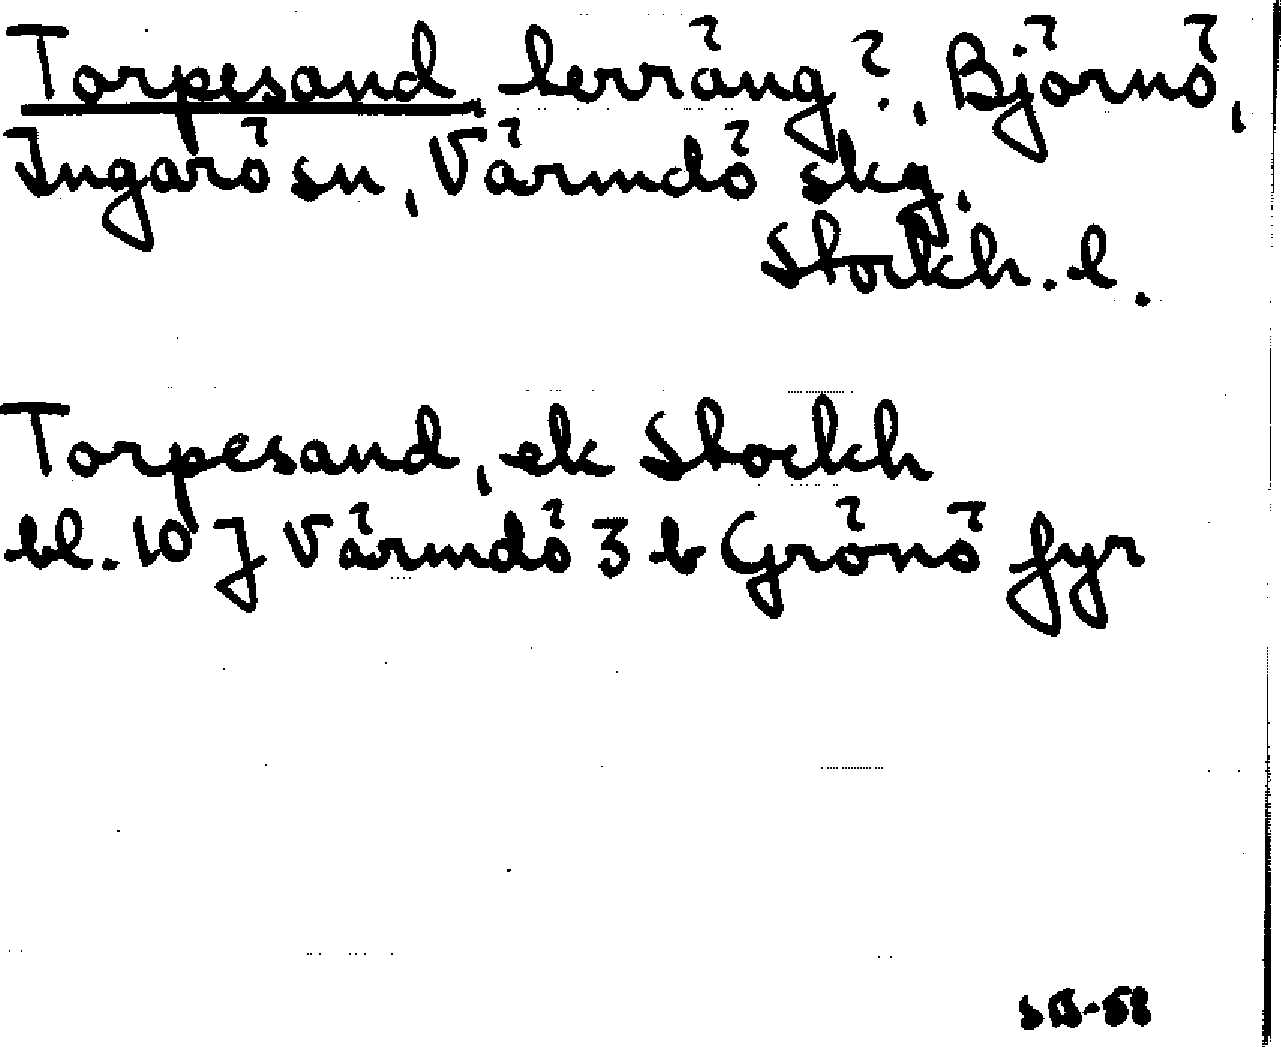 Torpesand, terräng?, Björnö,
Ingarö sn, Värmdö skg.
Stockh. l.
Torpesand, ek Stockh
bl. 10 J Värmdö 3 b Grönö fyr
SB-58